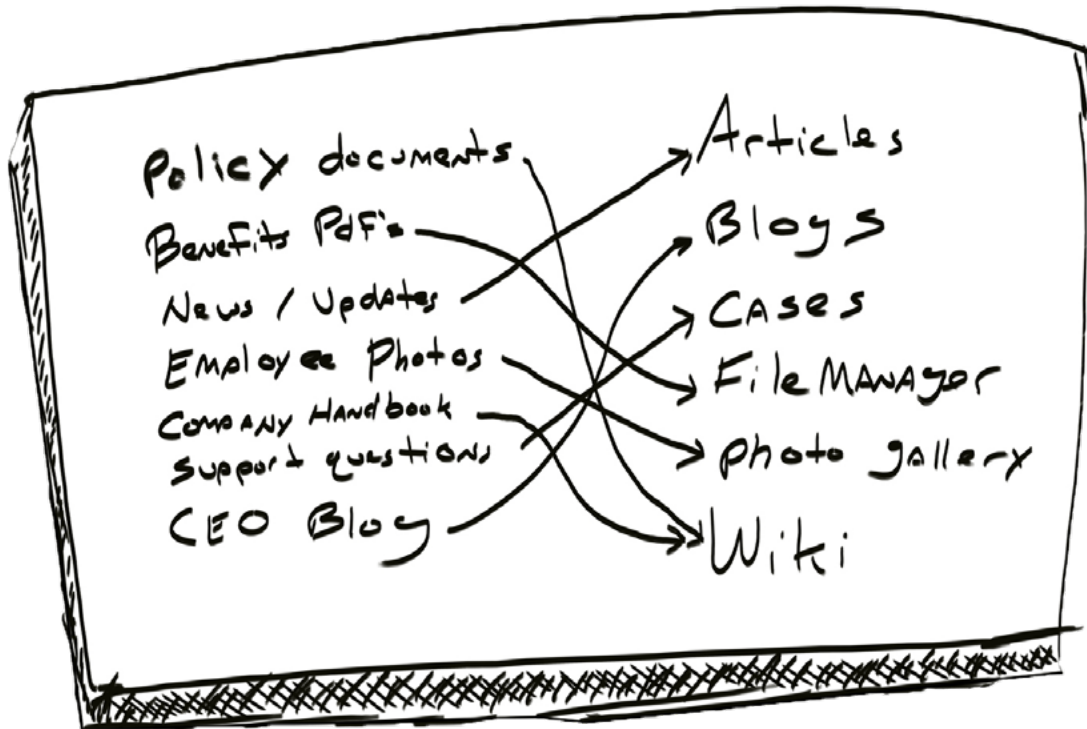 Policy documents
Benefits Pdf's
News / Updates
Employee Photos
Company Handbook
Support questions
CEO Blog
Articles
Blogs
Cases
File Manager
Photo gallery
Wiki